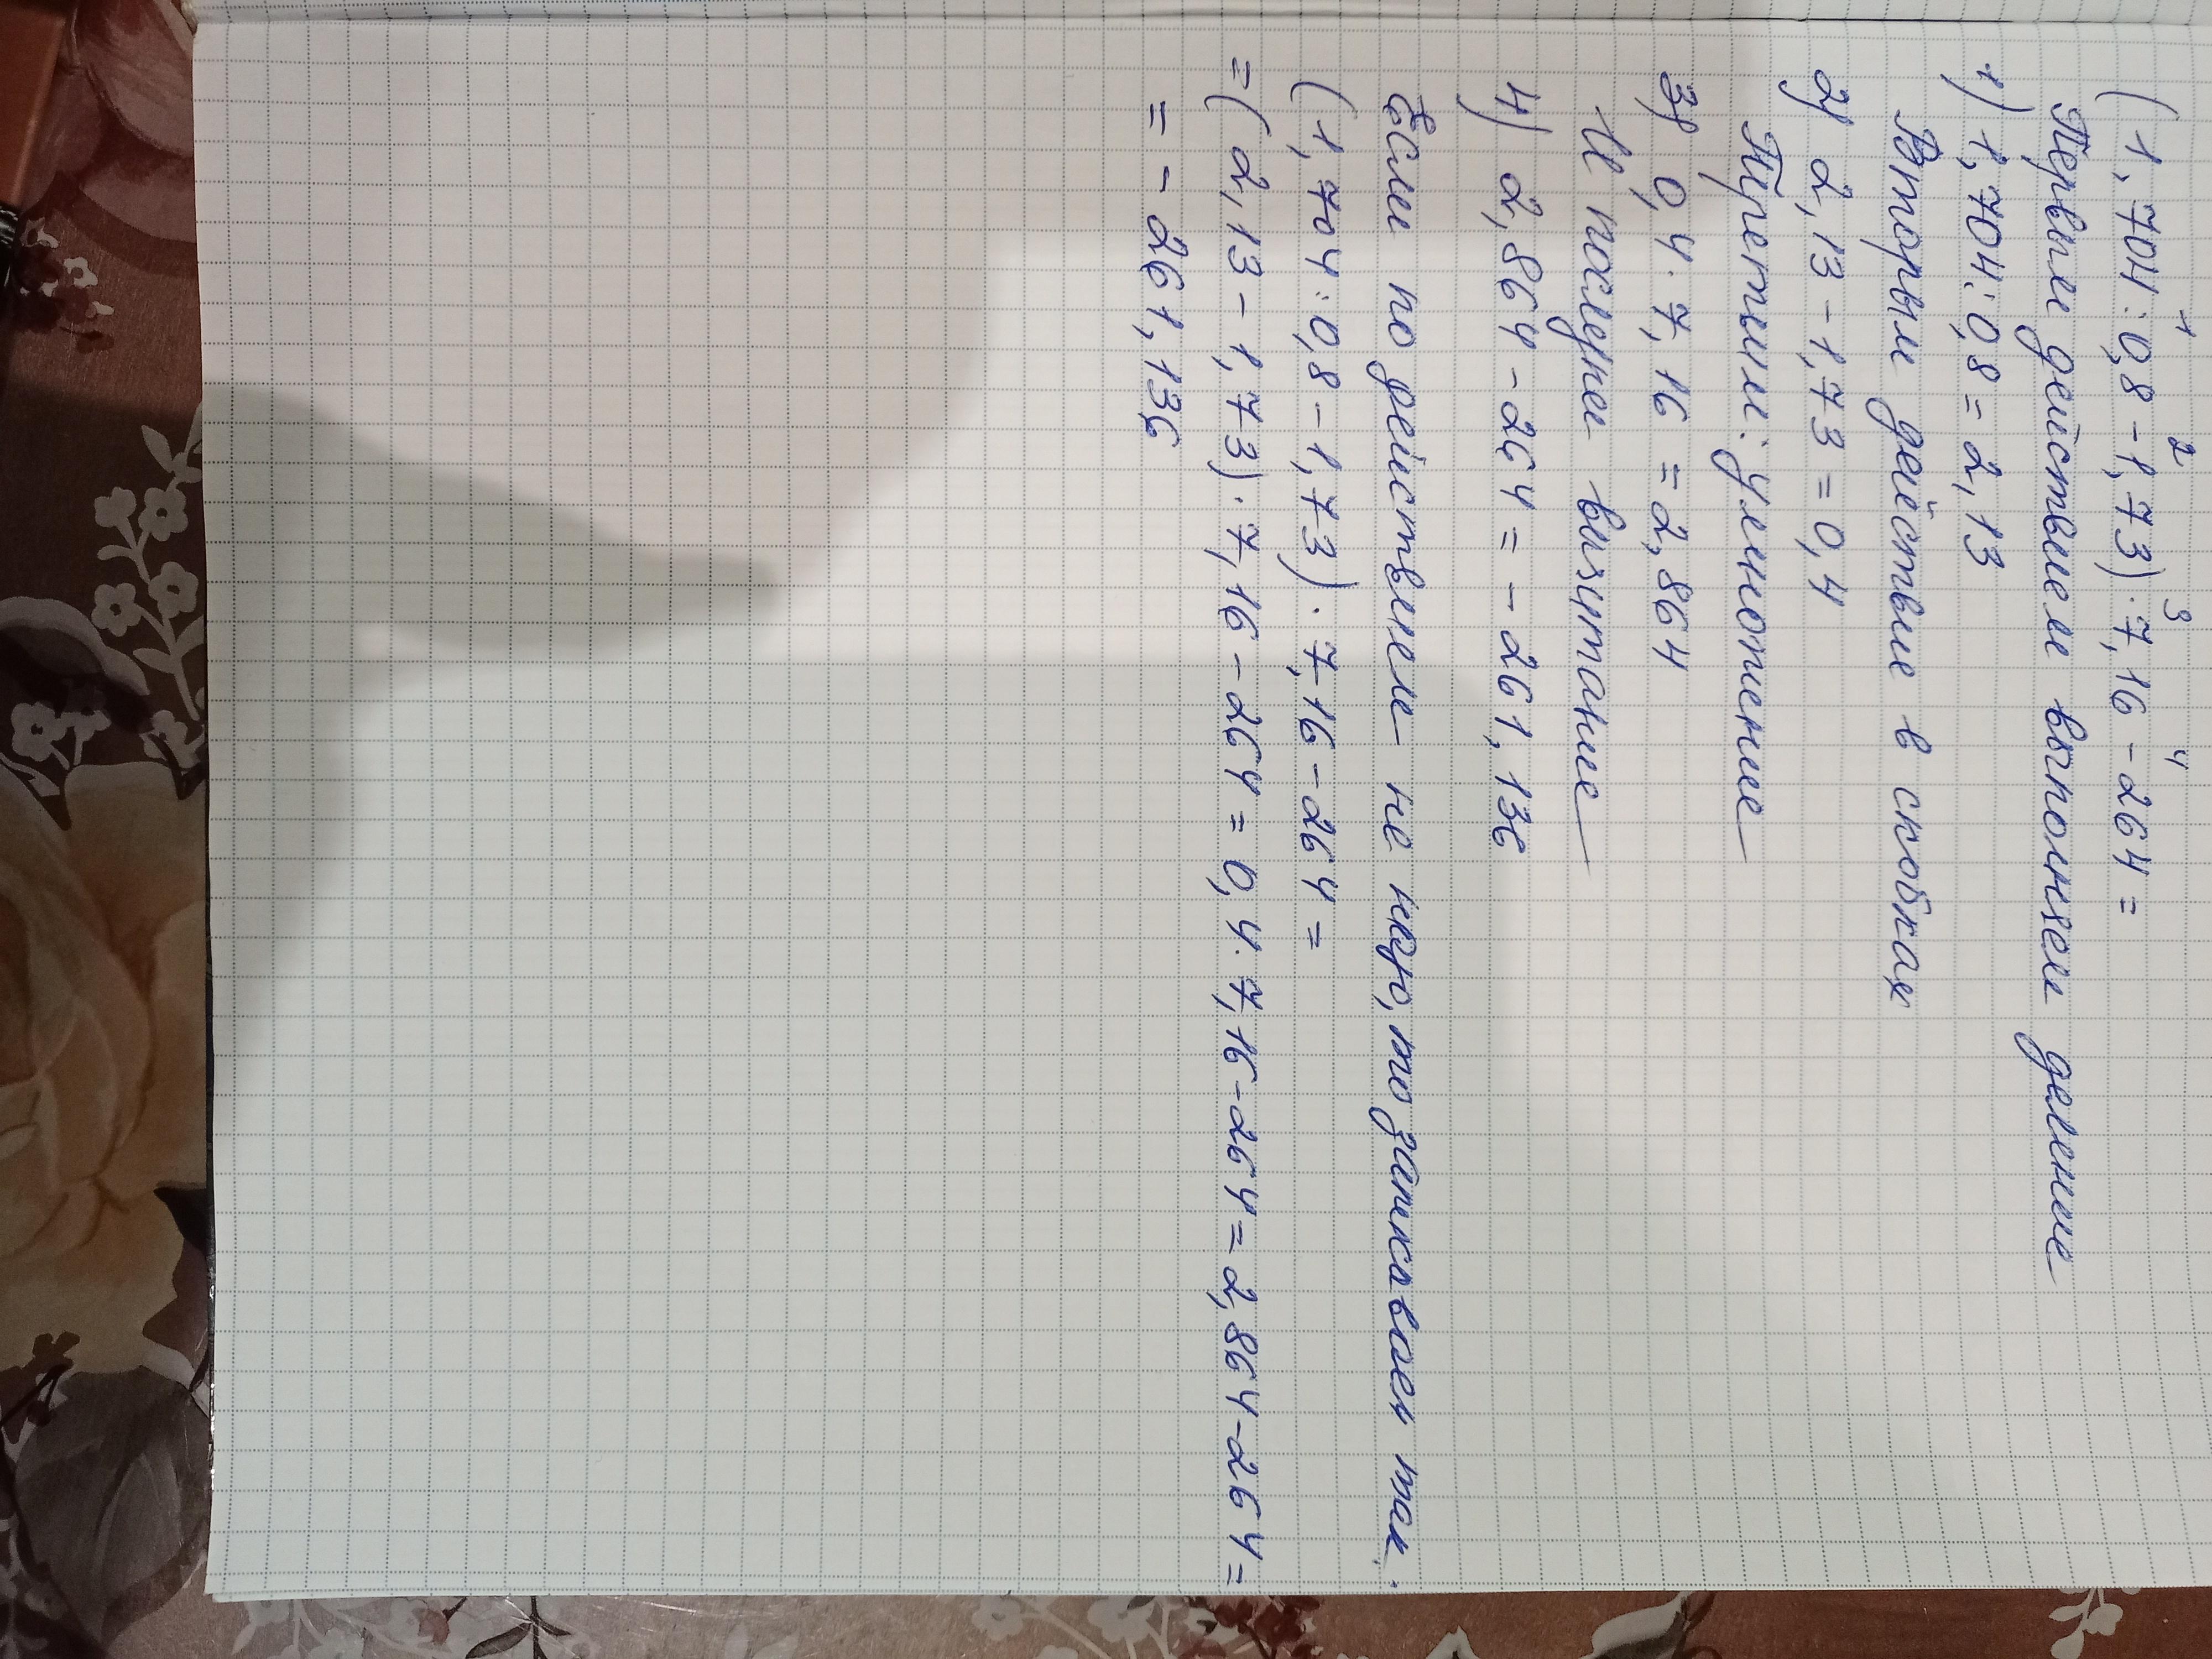 1 2 3 4
(1,704:0,8-1,73)·7,16-264=
Первым действием выполняем деление
1) 1,704:0,8=2,13
Вторым действие в скобках
2) 2,13-1,73=0,4
Третьим: умножение
3) 0,4·7,16=2,864
И последнее вычитание
4) 2,864-264=-261,136
Если по действиям не надо, то записываем так:
(1,704:0,8-1,73)·7,16-264=
=(2,13-1,73)·7,16-264=0,4·7,16-264=2,864-264=
=-261,136